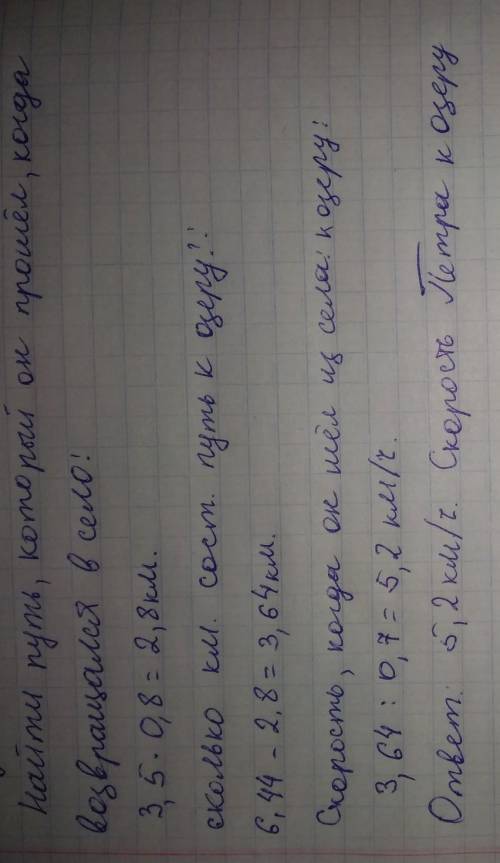 Найти путь, который он прошёл, когда
возвращался в село:
3,5 · 0,8 = 2,8 км.
сколько км. сост. путь к озеру?:
6,44 - 2,8 = 3,64 км.
Скорость, когда он шёл из села к озеру:
3,64 : 0,7 = 5,2 км/ч.
Ответ: 5,2 км/ч. Скорость Петра к озеру